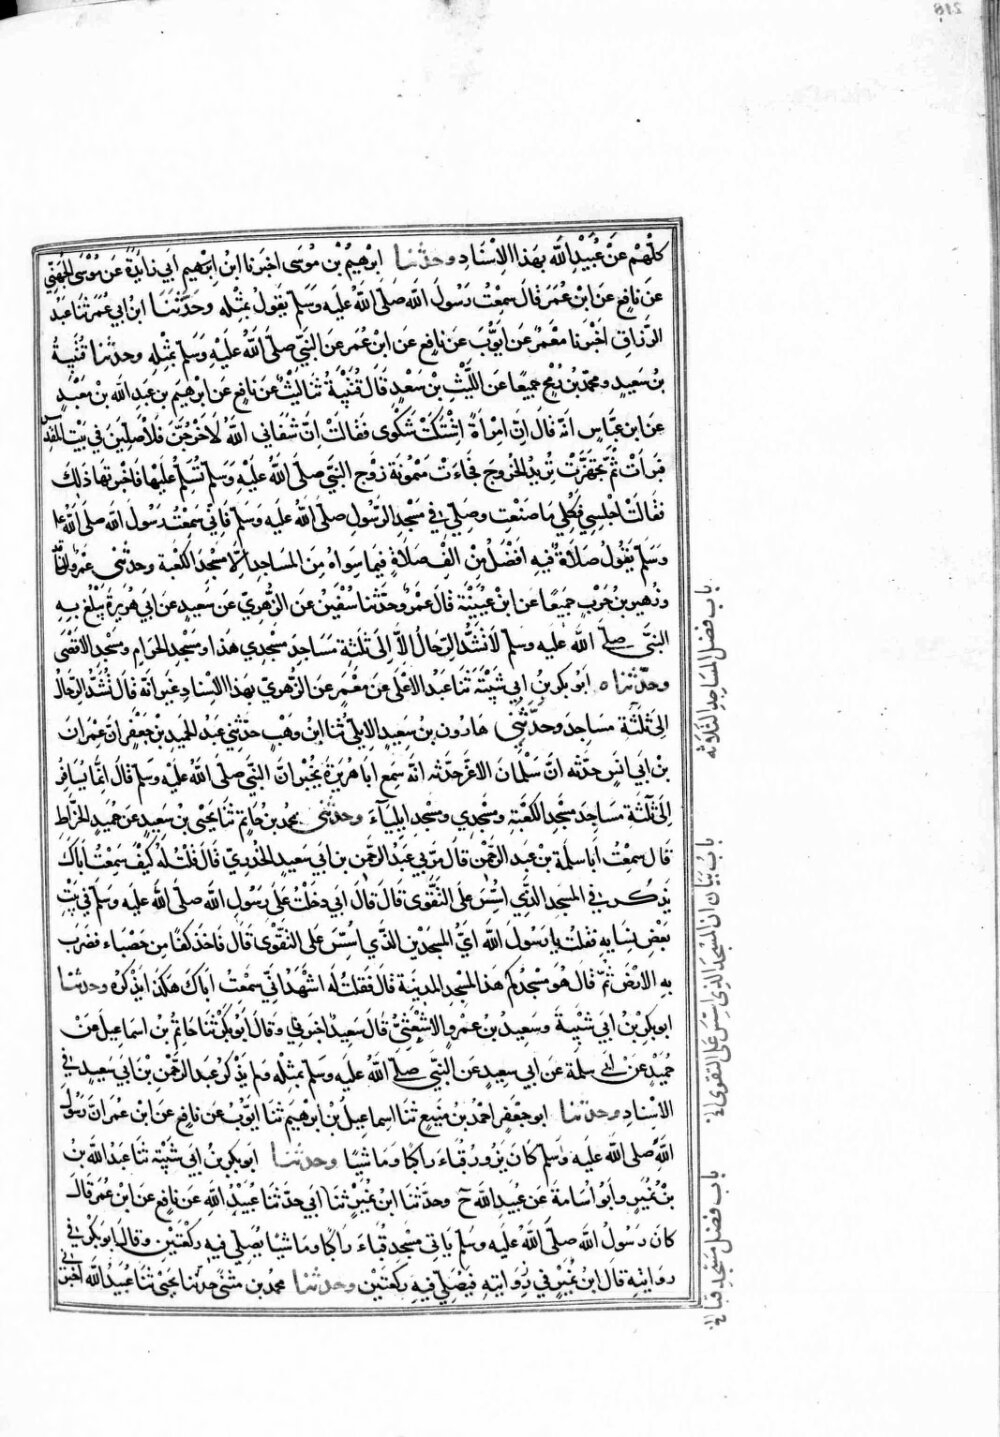 كلهم عن عبيد الله بهذا الاسناد وحدثنا ابرهيم بن موسى اخبرنا ابن ابرهيم ابي زايدة عن موسى الجهني
عن نافع عن ابن عمر قال سمعت رسول الله صلى الله عليه وسلم يقول بمثله وحدثنا ابن ابي عمر ثنا عبد
الرزاق اخبرنا معمر عن ايوب عن نافع عن ابن عمر عن النبي صلى الله عليه وسلم بمثله وحدثنا قتيبة
بن سعيد ومحمد بن رمح جميعا عن الليث بن سعد قال قتيبة ثنا ليث عن نافع عن ابرهيم بن عبد الله بن معبد
عن ابن عباس انه قال ان امرأة اشتكت شكوى فقالت ان شفاني الله لاخرجن فلاصلين في بيت المقدس
فبرأت ثم تجهزت تريد الخروج فجاءت ميمونة زوج النبي صلى الله عليه وسلم تسلم عليها فاخبرتها ذلك
فقالت اجلسي فكلي ما صنعت وصلي في مسجد الرسول صلى الله عليه وسلم فاني سمعت رسول الله صلى الله عليه
وسلم يقول صلاة فيه افضل من الف صلاة فيما سواه من المساجد الا مسجد الكعبة وحدثني عمرو الناقد
وزهير بن حرب جميعا عن ابن عيينة قال عمرو حدثنا سفين عن الزهري عن سعيد عن ابي هريرة يبلغ به
النبي صلى الله عليه وسلم لا تشد الرحال الا الى ثلثة مساجد مسجدي هذا ومسجد الحرام ومسجد الاقصى
وحدثناه ابو بكر بن ابي شيبة ثنا عبد الاعلى عن معمر عن الزهري بهذا الاسناد غير انه قال تشد الرحال
الى ثلثة مساجد وحدثني هارون بن سعيد الايلي ثنا ابن وهب حدثني عبد الحميد بن جعفر ان عمران
بن ابي انس حدثه ان سلمان الاغر حدثه انه سمع ابا هريرة يخبر ان النبي صلى الله عليه وسلم قال انما يسافر
الى ثلثة مساجد مسجد الكعبة ومسجدي ومسجد ايلياء وحدثني محمد بن حاتم ثنا يحيى بن سعيد عن حميد الخراط
قال سمعت ابا سلمة بن عبد الرحمن قال مر بي عبد الرحمن بن ابي سعيد الخدري قال قلت له كيف سمعت اباك
يذكر في المسجد الذي اسس على التقوى قال قال ابي دخلت على رسول الله صلى الله عليه وسلم في بيت
بعض نسايه فقلت يا رسول الله اي المسجدين الذي اسس على التقوى قال فاخذ كفا من حصباء فضرب
به الارض ثم قال هو مسجدكم هذا لمسجد المدينة قال فقلت له اشهد اني سمعت اباك هكذا يذكره وحدثنا
ابو بكر بن ابي شيبة وسعيد بن عمرو الاشعثي قال سعيد اخبرنا وقال ابو بكر ثنا حاتم بن اسماعيل عن
حميد عن ابي سلمة عن ابي سعيد عن النبي صلى الله عليه وسلم بمثله ولم يذكر عبد الرحمن بن ابي سعيد في
الاسناد وحدثنا ابو جعفر احمد بن منيع ثنا اسماعيل بن ابرهيم ثنا ايوب عن نافع عن ابن عمر ان رسول
الله صلى الله عليه وسلم كان يزور قباء راكبا وماشيا وحدثنا ابو بكر بن ابي شيبة ثنا عبد الله بن
بن نمير وابو اسامة عن عبيد الله ح وحدثنا ابن نمير ثنا ابي حدثنا عبيد الله عن نافع عن ابن عمر قال
كان رسول الله صلى الله عليه وسلم ياتي مسجد قباء راكبا وماشيا يصلي فيه ركعتين وقال ابو بكر في
روايته قال ابن نمير في روايته فيصلي فيه ركعتين وحدثنا محمد بن مثنى حدثنا يحيى ثنا عبيد الله اخبرني
باب فضل المساجد الثلاثه
باب بيان ان المسجد الذي اسس على التقوى
باب فضل مسجد قبا